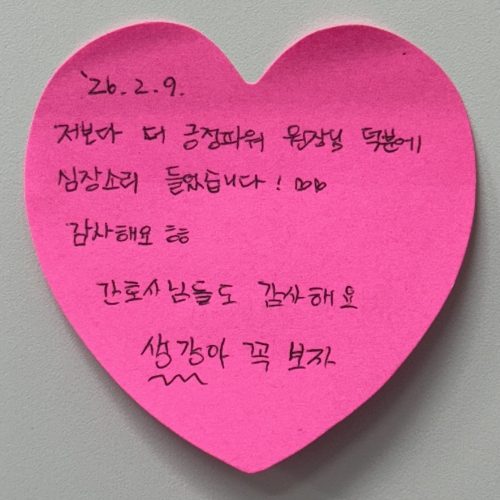 '26. 2. 9.
저보다 더 긍정파워 원장님 덕분에
심장소리 들었습니다! ♡♡
감사해요 ㅎㅎ
간호사님들도 감사해요
생강아 꼭 보자